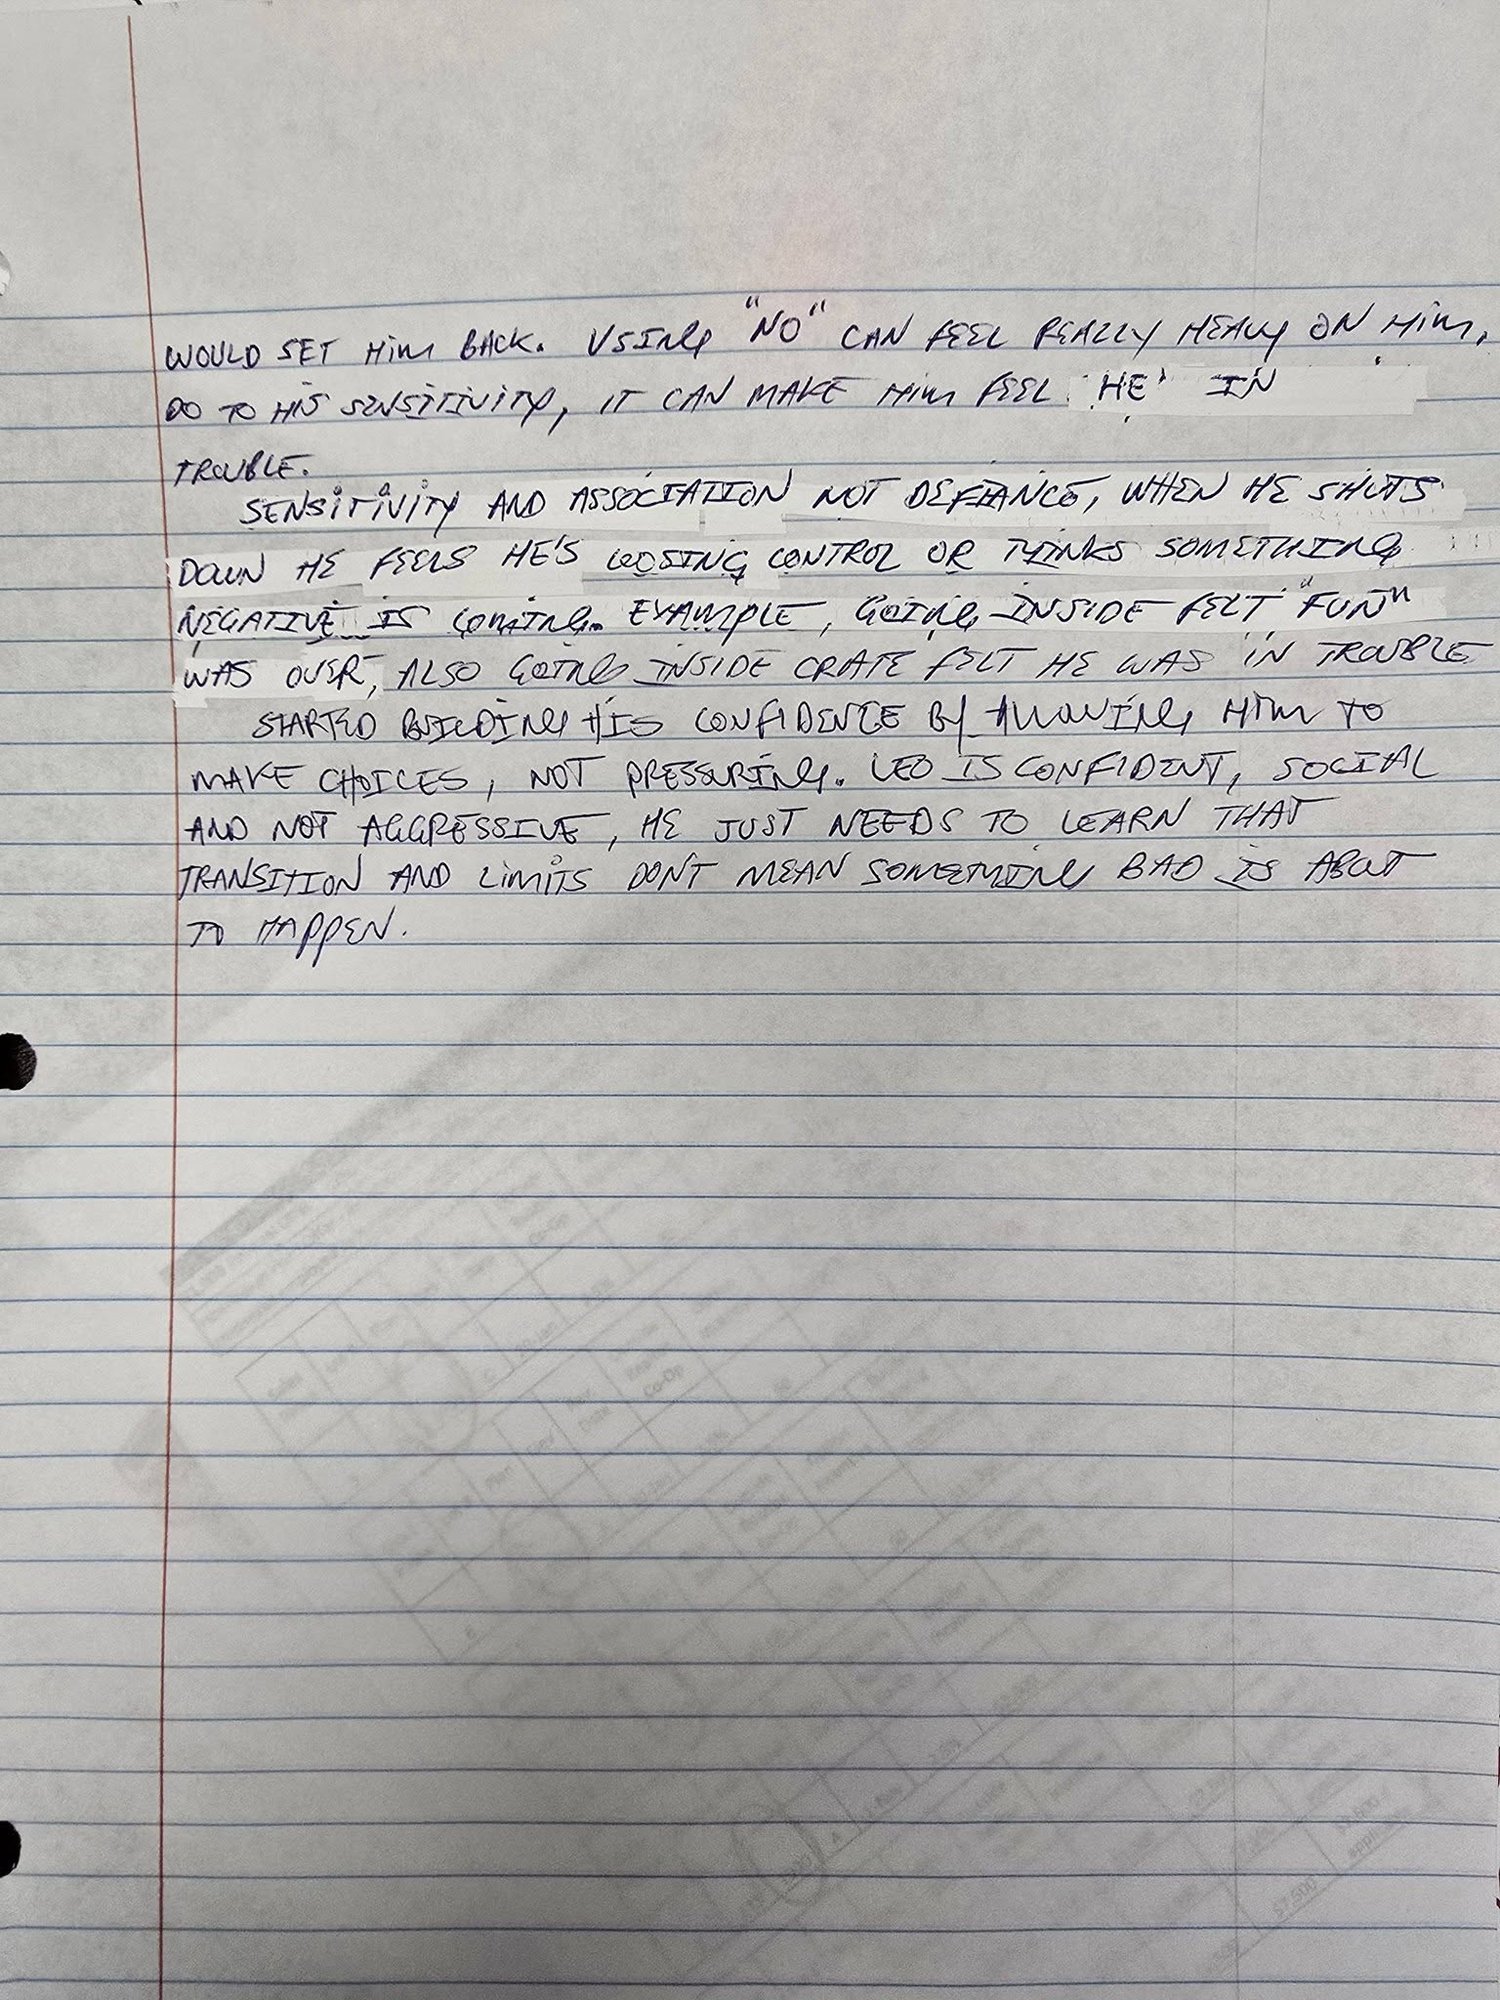 WOULD SET HIM BACK. USING "NO" CAN FEEL REALLY HEAVY ON HIM,
DO TO HIS SENSITIVITY, IT CAN MAKE HIM FEEL HE' IN
TROUBLE.
SENSITIVITY AND ASSOCIATION NOT DEFIANCE, WHEN HE SHUTS
DOWN HE FEELS HE'S LOOSING CONTROL OR THINKS SOMETHING
NEGATIVE IS COMING. EXAMPLE, GOING INSIDE FELT "FUN"
WAS OVER, ALSO GOING INSIDE CRATE FELT HE WAS IN TROUBLE
STARTED BUILDING HIS CONFIDENCE BY ALLOWING HIM TO
MAKE CHOICES, NOT PRESSURING. LEO IS CONFIDENT, SOCIAL
AND NOT AGGRESSIVE, HE JUST NEEDS TO LEARN THAT
TRANSITION AND LIMITS DON'T MEAN SOMETHING BAD IS ABOUT
TO HAPPEN.